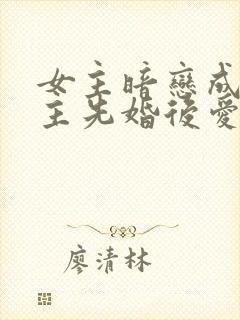 女主暗戀成
主先婚後愛
廖清林